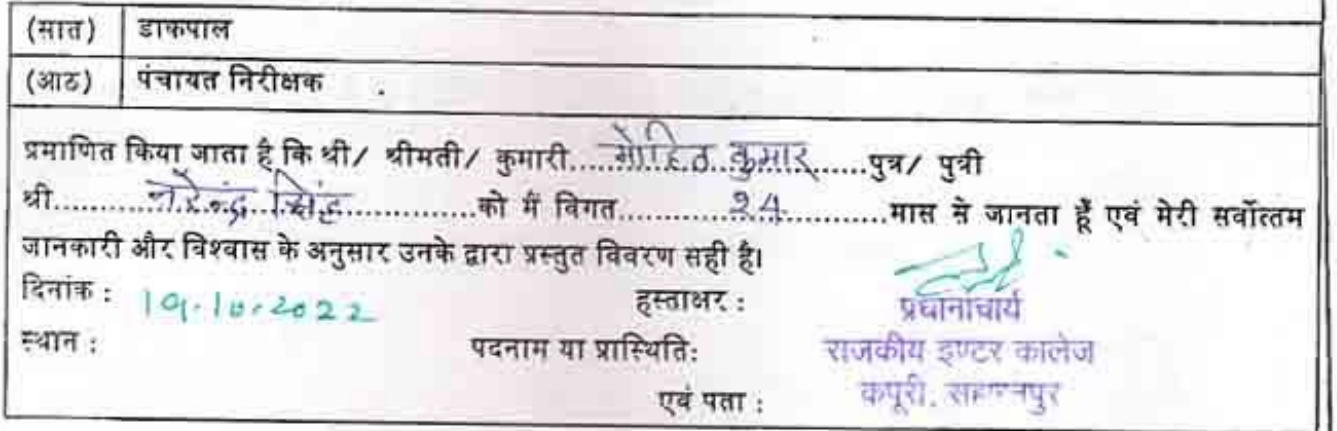 (सात) डाकपाल
(आठ) पंचायत निरीक्षक .
प्रमाणित किया जाता है कि श्री/ श्रीमती/ कुमारी.....मोहित कुमार......पुत्र/ पुत्री
श्री............नरेन्द्र सिंह................को मैं विगत............24............मास से जानता हूँ एवं मेरी सर्वोत्तम
जानकारी और विश्वास के अनुसार उनके द्वारा प्रस्तुत विवरण सही है।
दिनांक : 19.10.2022 हस्ताक्षर :
प्रधानाचार्य
स्थान : पदनाम या प्रास्थिति: राजकीय इण्टर कालेज
एवं पता : कपूरी, सहारनपुर